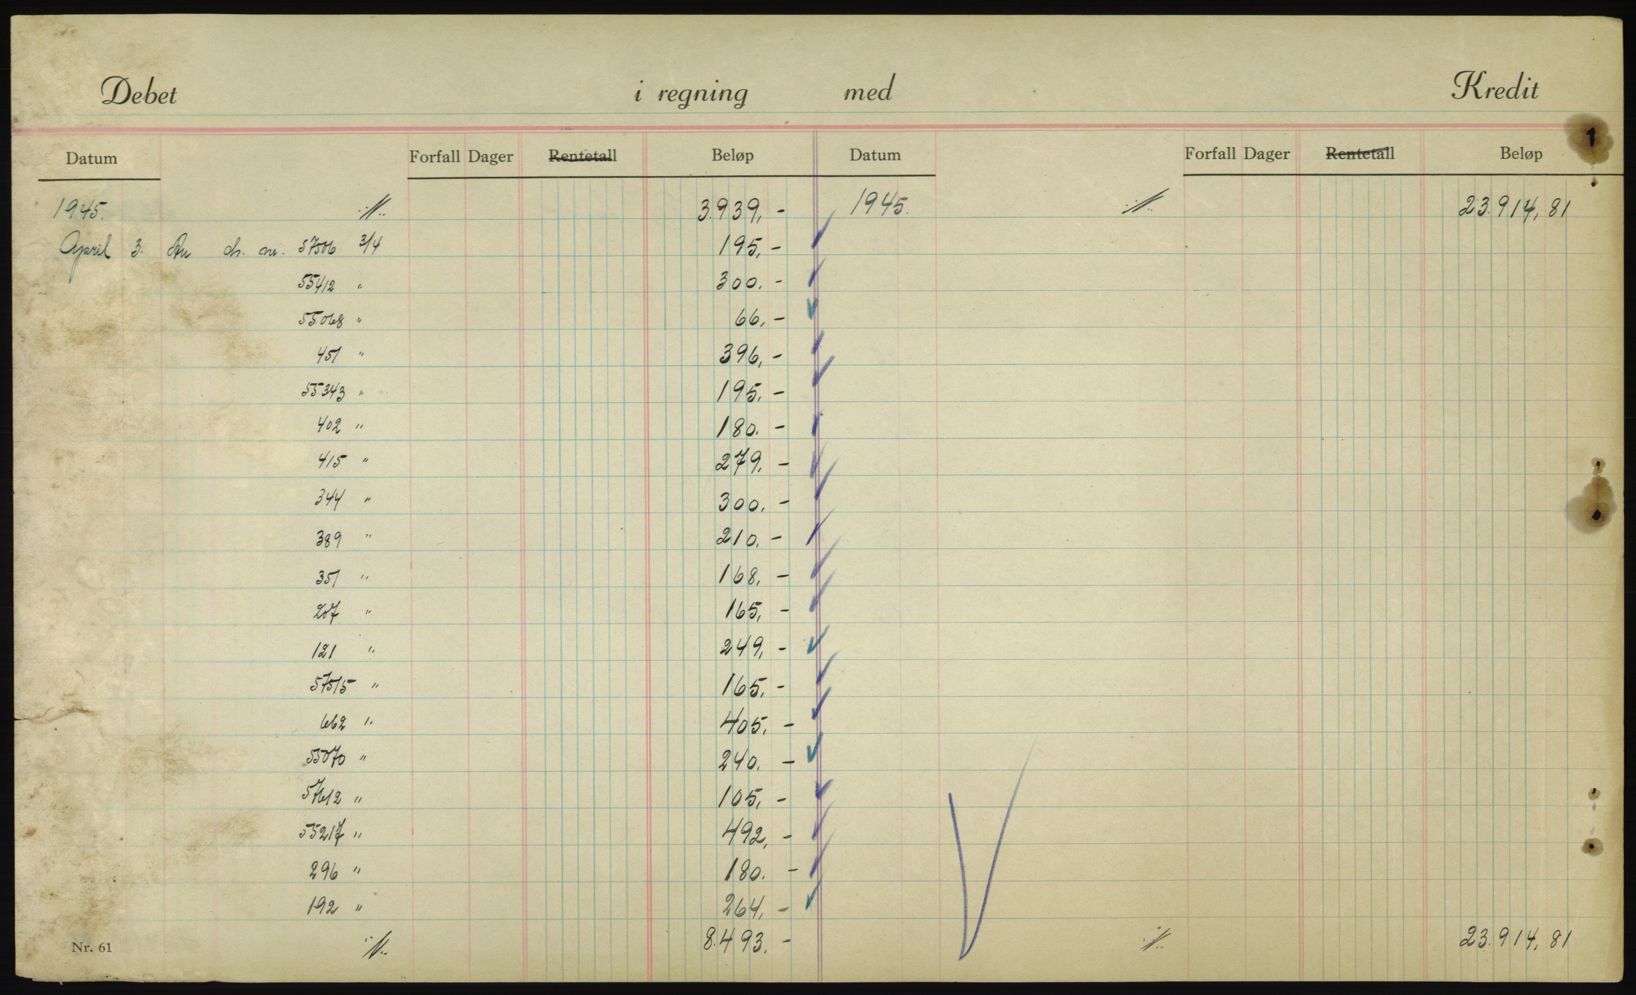 Debet i regning med Kredit
Datum Forfall Dager Rentetall Beløp Datum Forfall Dager Rentetall Beløp
1945. 3.939,- 1945. 23.914,81
April 3. An ch. nr. 57506 3/4 195,-
55412 " 300.-
55068 " 66,-
451 " 396,-
55343 " 195.-
402 " 180.-
415 " 279.-
344 " 300.-
389 " 210.-
351 " 168,-
207 " 165,-
121 " 249,-
57515 " 165.-
662 " 405.-
55070 " 240.-
57612 " 105,-
55217 " 492,-
296 " 180.-
192 " 264,-
Nr. 61 8.493.- 23.914,81